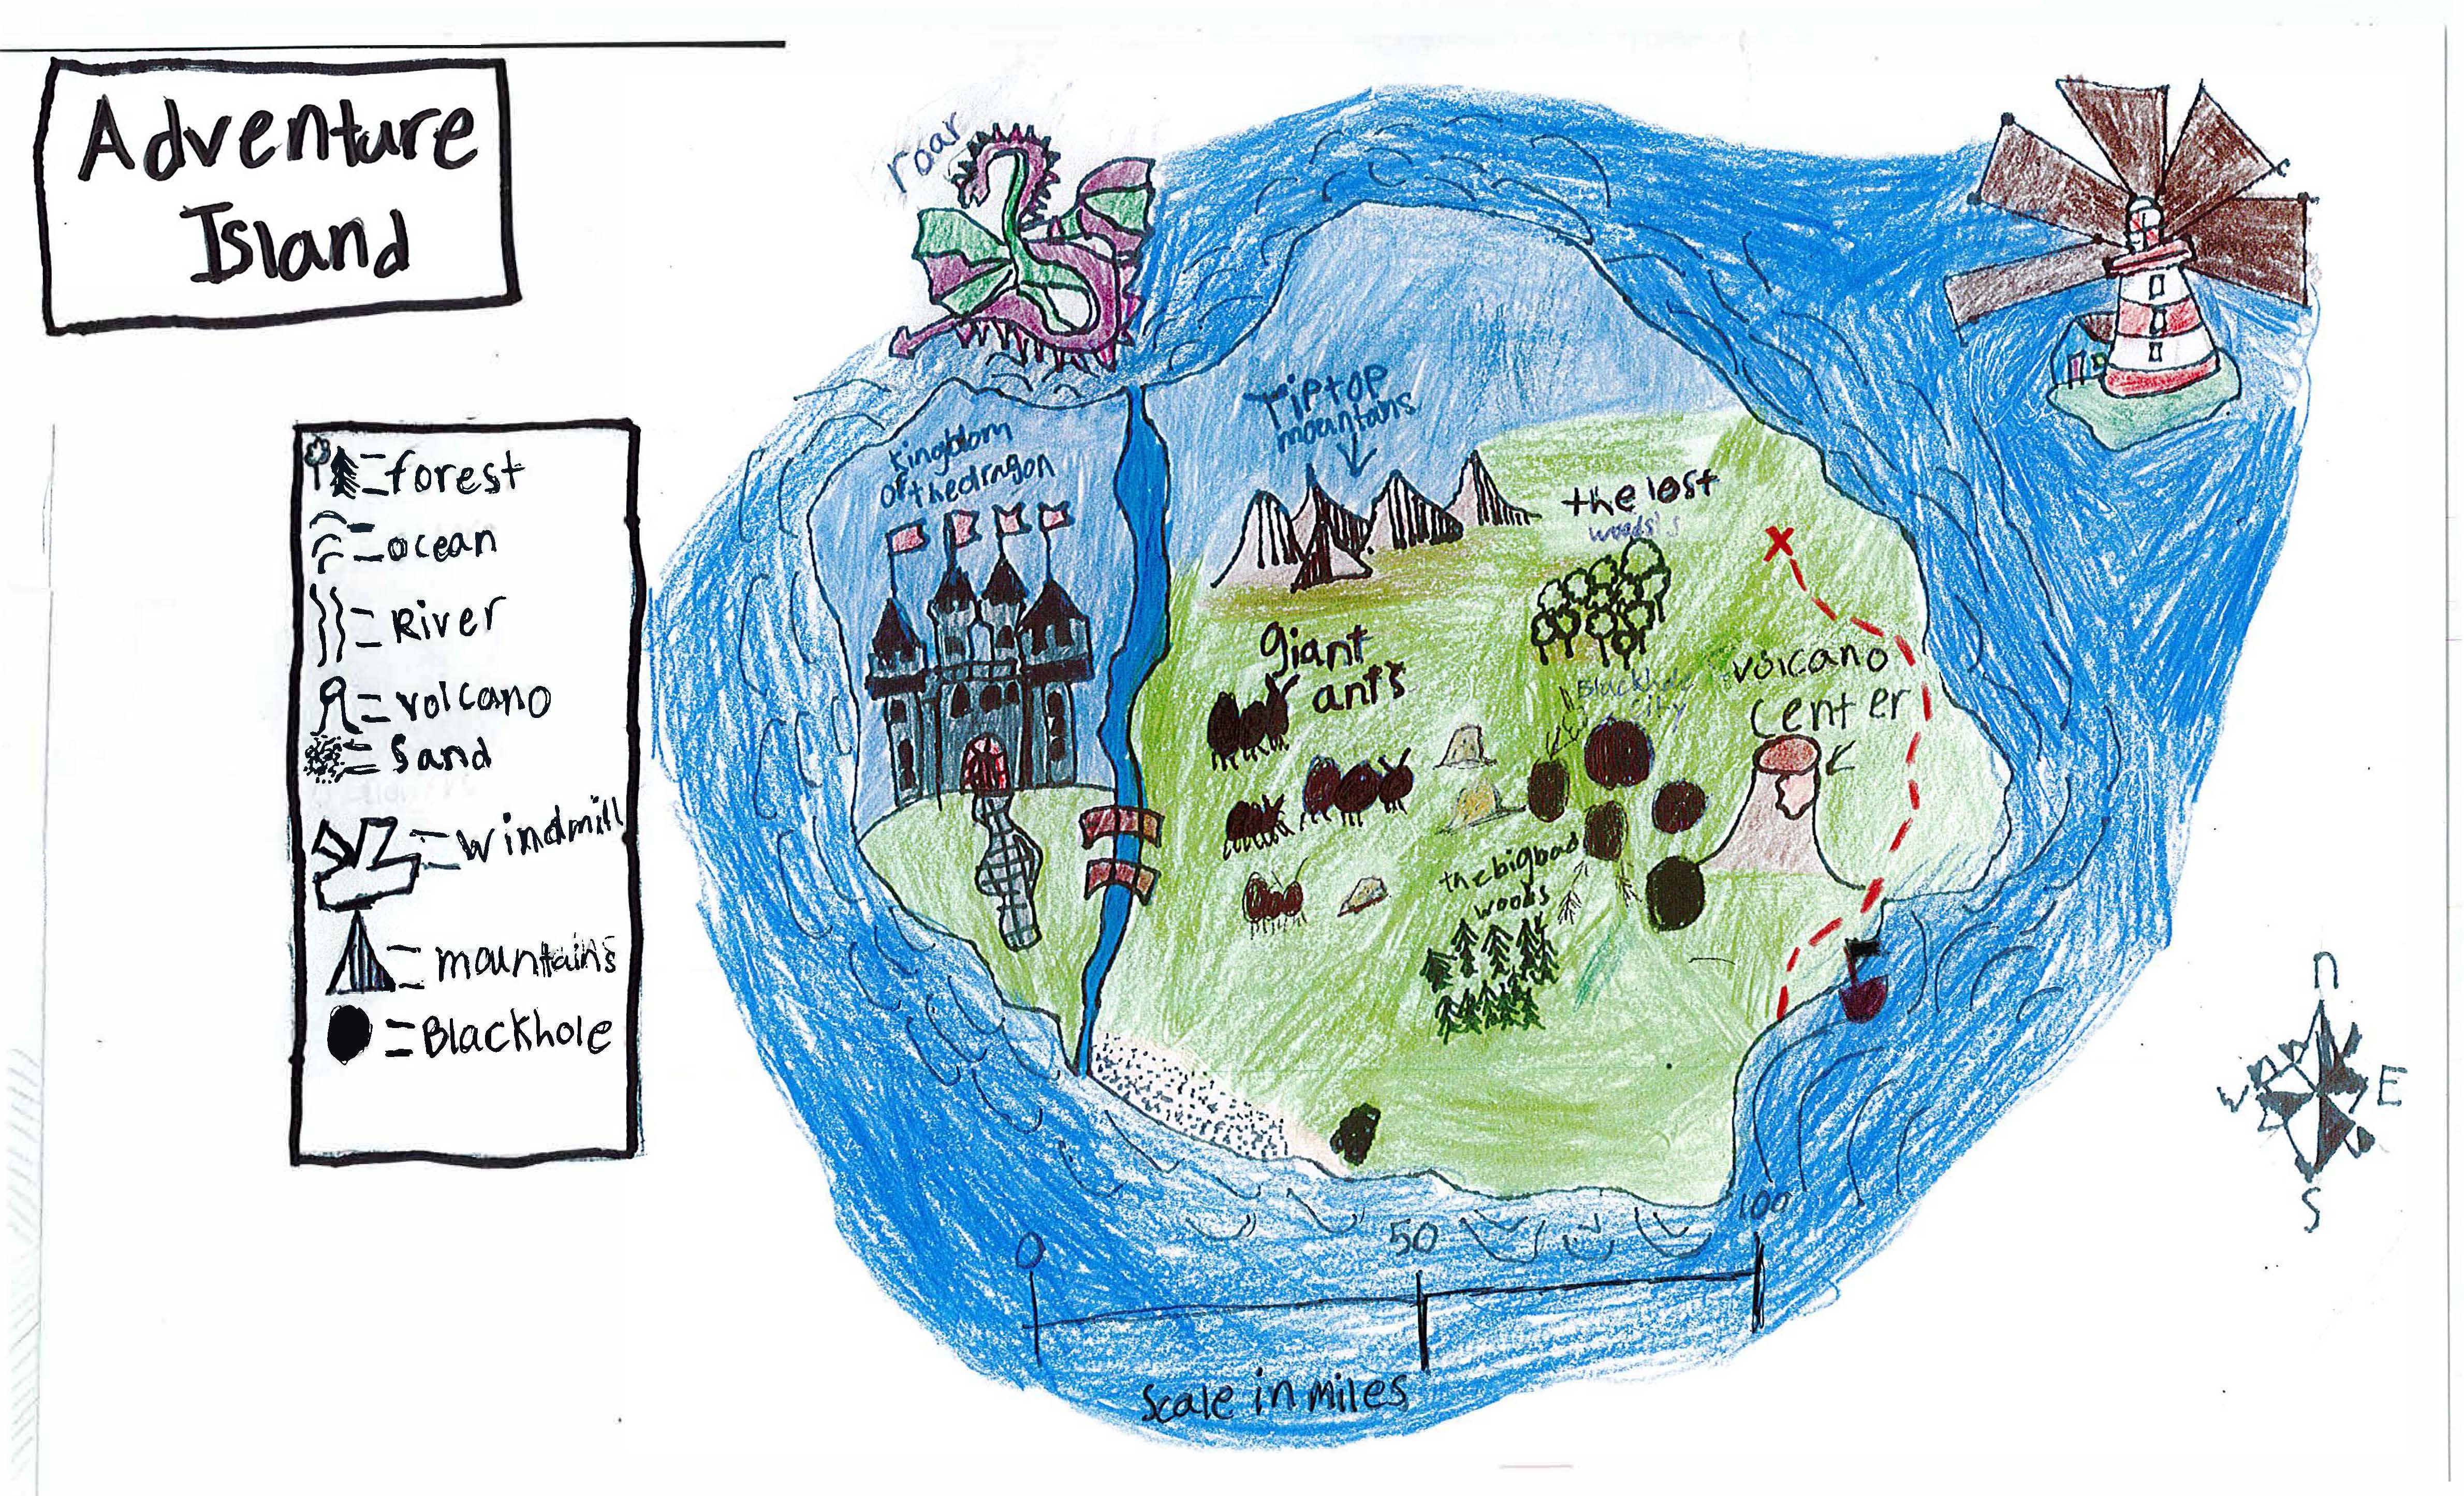 Adventure
Island
roar
=forest
=ocean
=River
=volcano
=Sand
=Windmill
=mountains
=Blackhole
Kingdom
of the dragon
Tiptop
mountains
the lost
woods's
giant
ants
Blackhole
City
volcano
center
the big bad
woods
n
W
E
S
0
50
100
Scale in miles